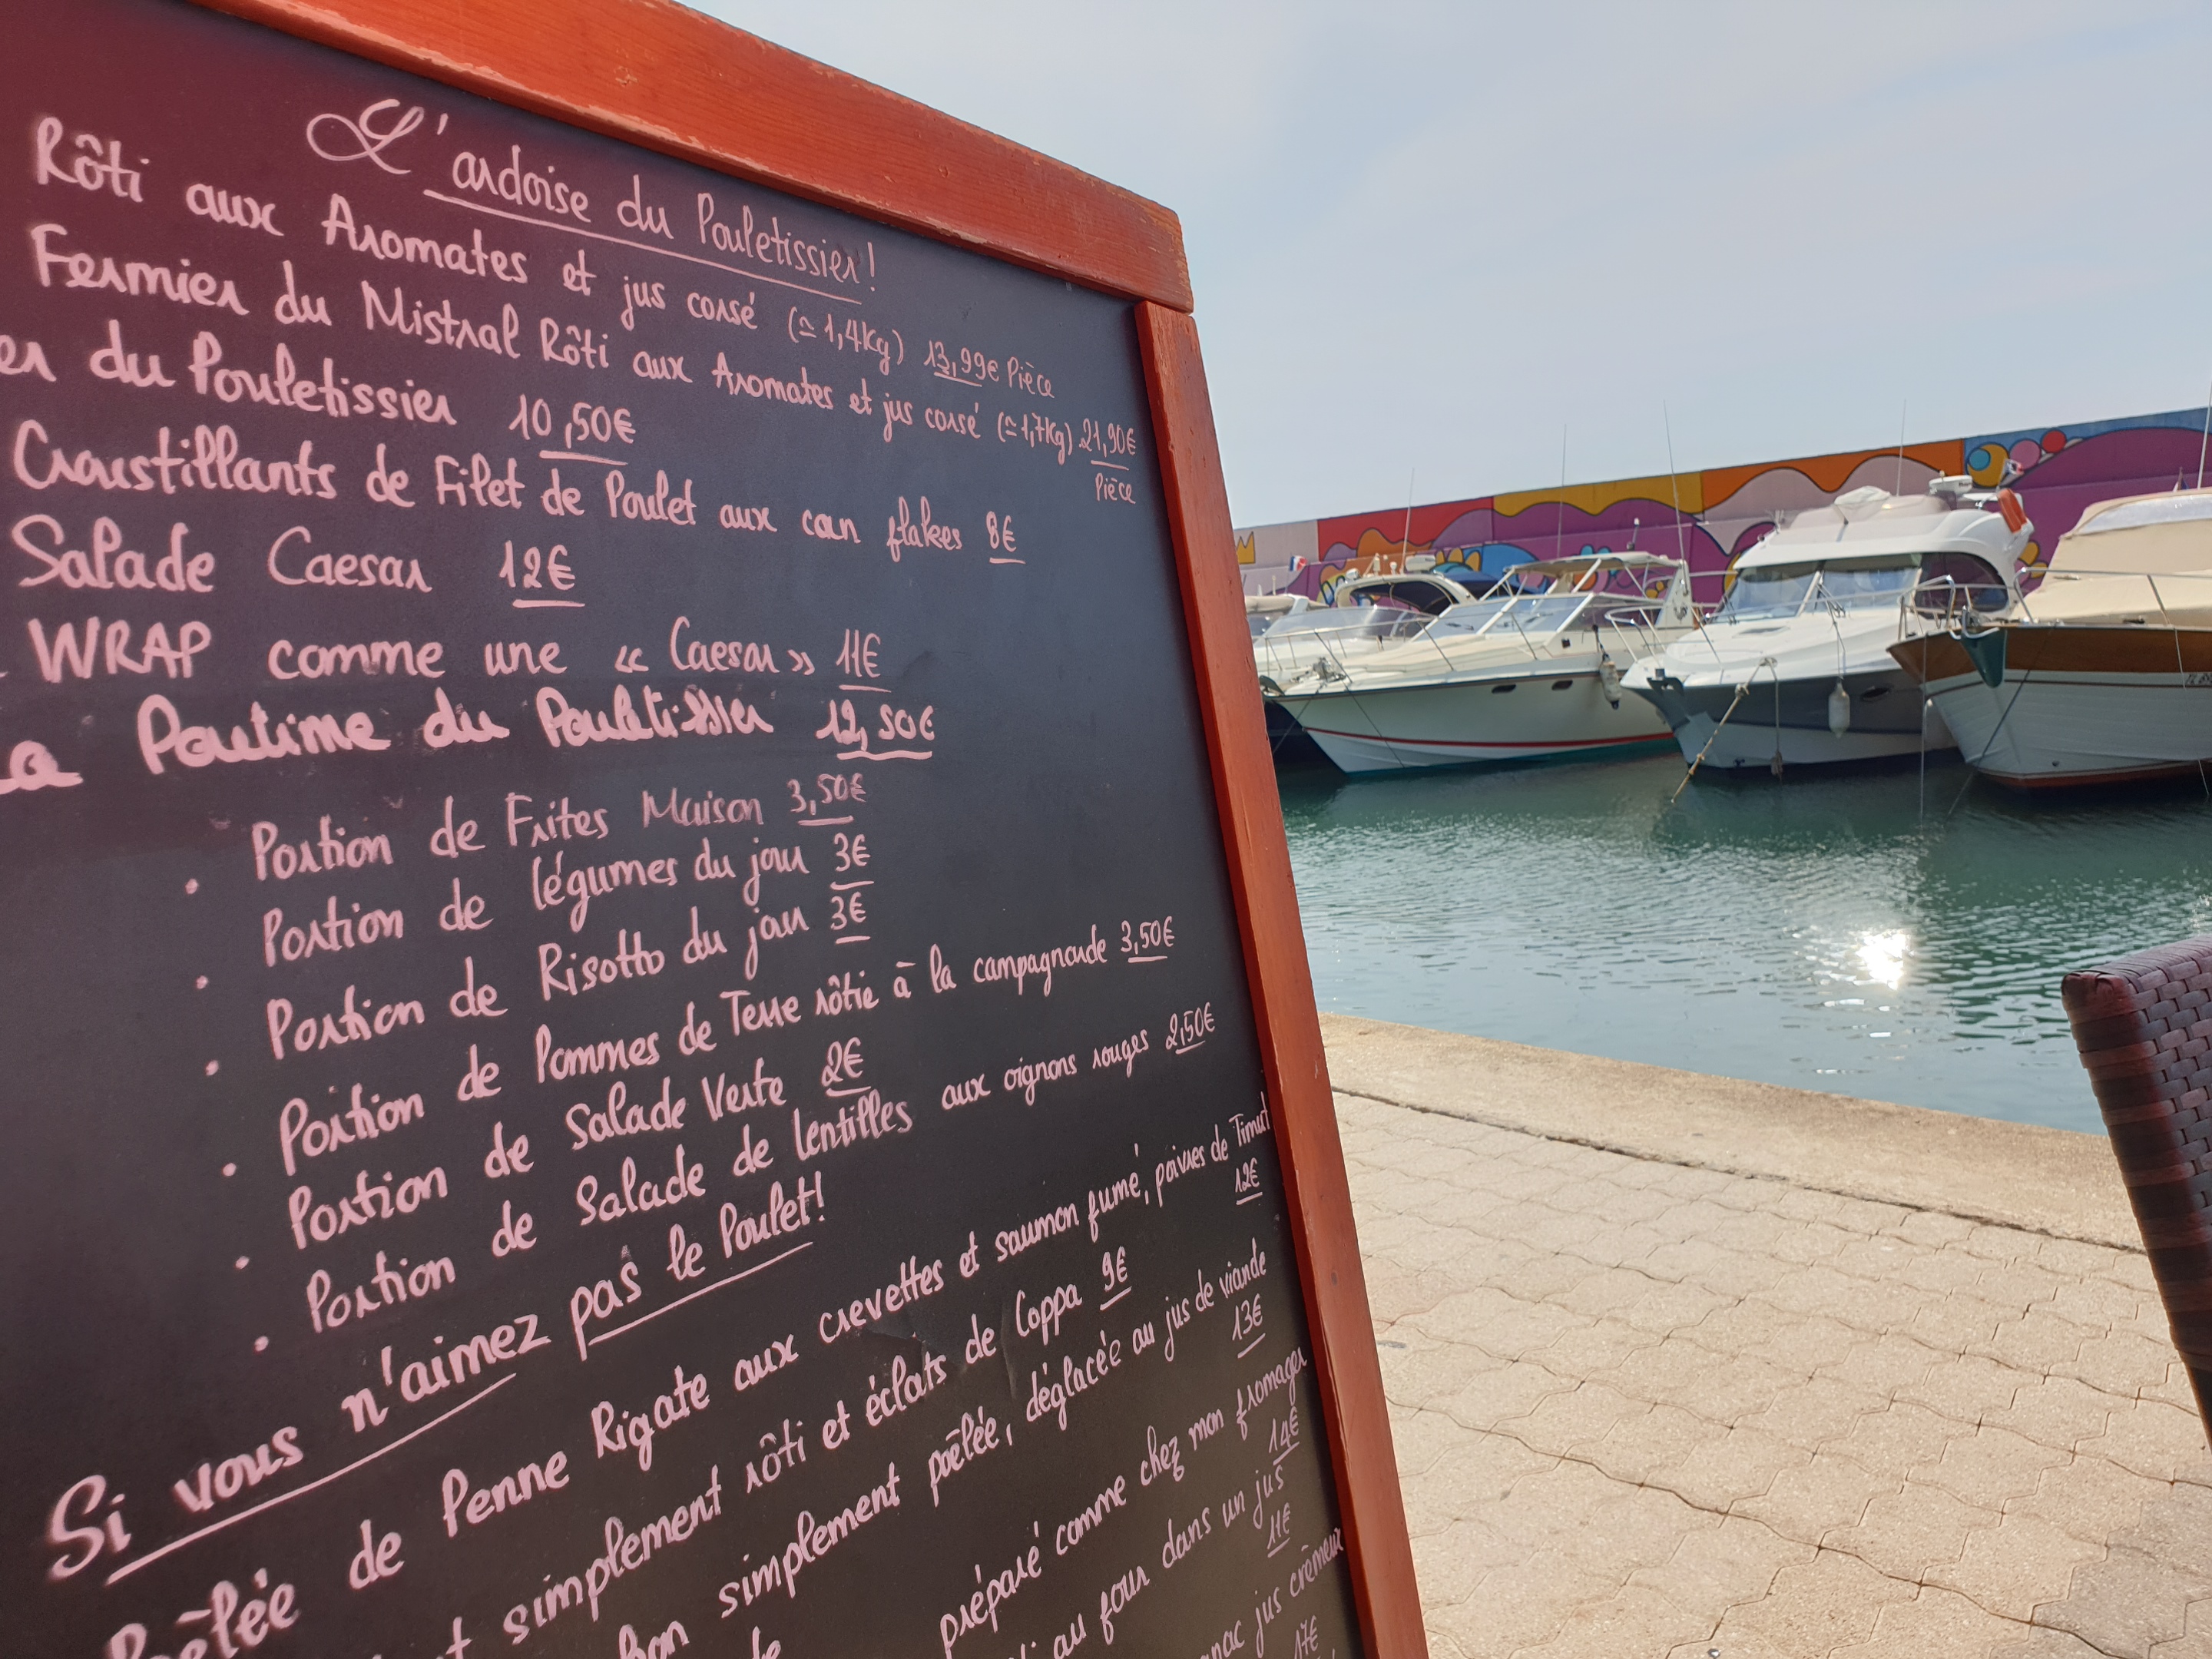 L'ardoise du Pouletissier!
Rôti aux Aromates et jus corsé (≃1,4Kg) 13,99€ Pièce
Fermier du Mistral Rôti aux Aromates et jus corsé (≃1,7Kg) 21,90€
Pièce
er du Pouletissier 10,50€
Croustillants de Filet de Poulet aux corn flakes 8€
Salade Caesar 12€
WRAP comme une « Caesar » 11€
a Poutime du Pouletissier 12,50€
• Portion de Frites Maison 3,50€
• Portion de légumes du jour 3€
• Portion de Risotto du jour 3€
• Portion de Pommes de Terre rôtie à la campagnarde 3,50€
• Portion de Salade Verte 2€
• Portion de Salade de lentilles aux oignons rouges 2,50€
Si vous n'aimez pas le Poulet!
Poêlée de Penne Rigate aux crevettes et saumon fumé, poivres de Timut
12€
t simplement rôti et éclats de Coppa 9€
simplement poêlée, déglacée au jus de viande
13€
préparé comme chez mon fromager
14€
au four dans un jus
11€
jus crèmeux
17€